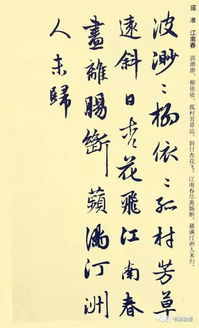 寇准 江南春 波渺渺，柳依依，孤村芳草远，斜日杏花飞。江南春尽离肠断，蘋满汀洲人未归。
波渺々柳依々孤村芳草
遠斜日杏花飛江南春
盡離腸斷蘋滿汀洲
人未歸